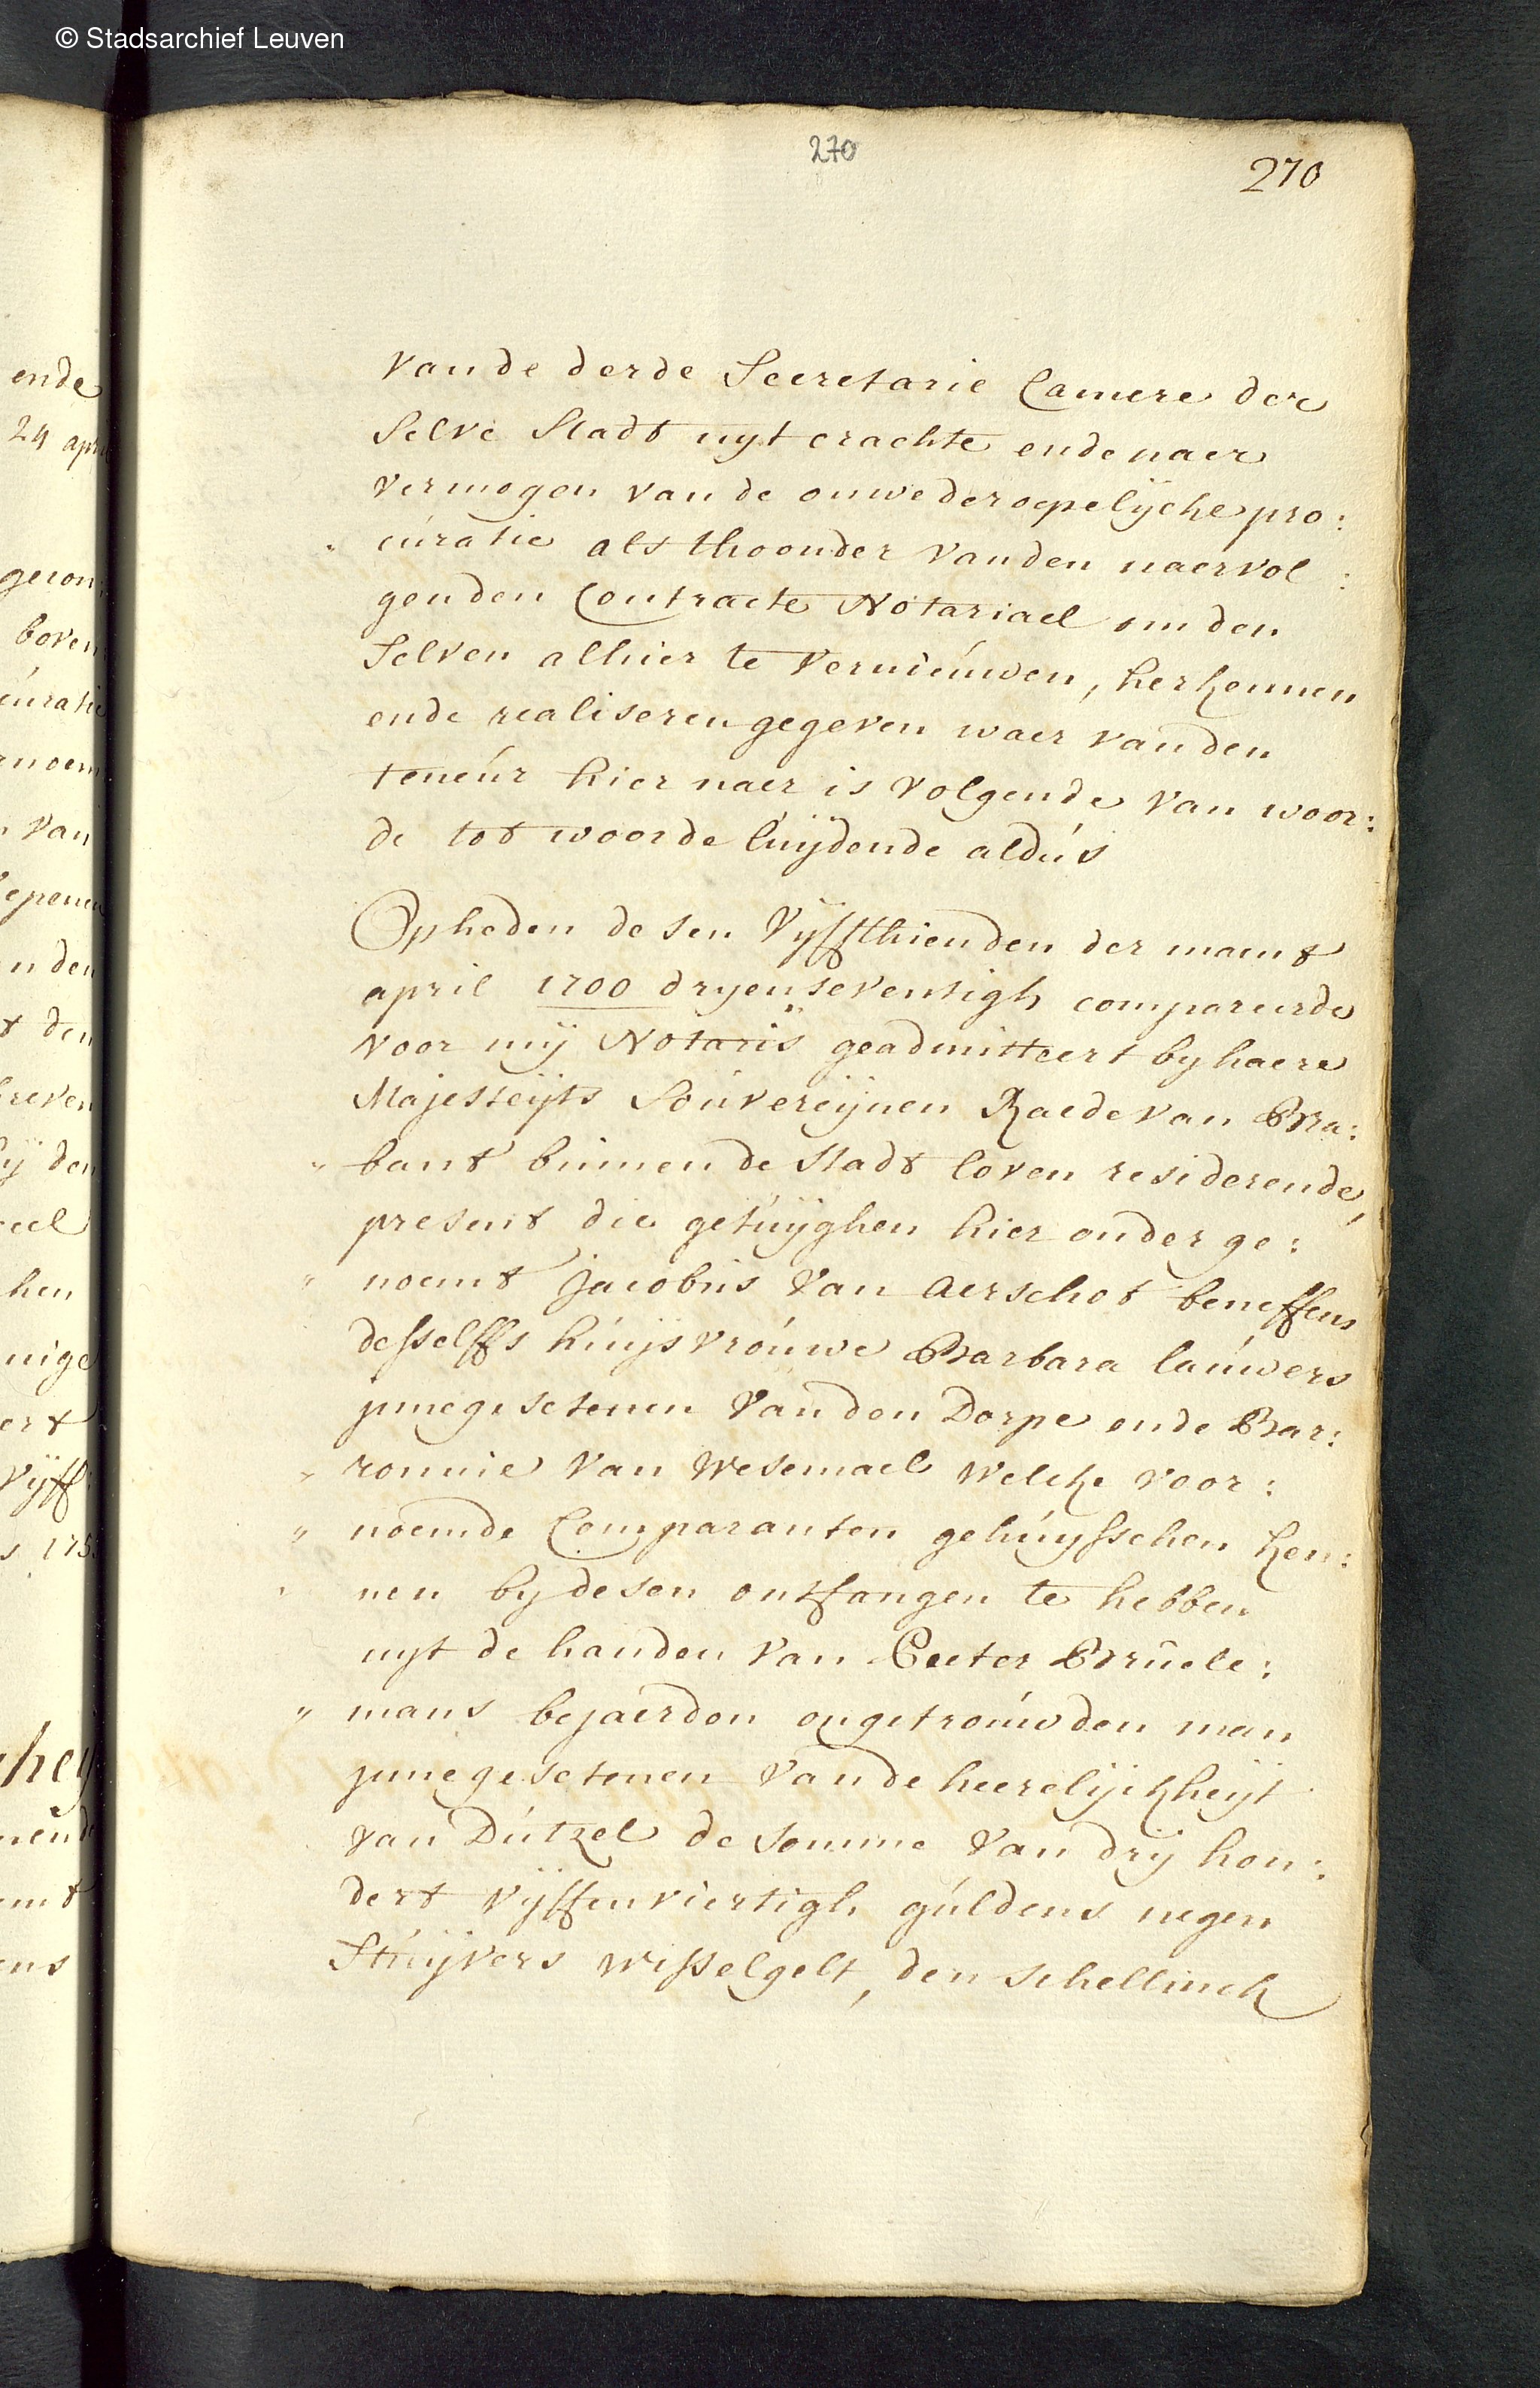 © Stadsarchief Leuven
270
270
vande derde Secretarie Camere der
selve Stadt uyt crachte ende naer
vermogen van de onwederoepelijcke pro:
„ curatie als thoonder vanden naervol:
genden Contracte Notariael om den
selven alhier te vernieúwen, herkennen
ende realiseren gegeven waer vanden
teneúr hier naer is volgende van woor:
de tot woorde lúijdende aldús
Opheden desen vijffthienden der maent
april 1700 dryenseventigh compareerde
voor mij Notaris geadmitteert by haere
Majesteijts Soúvereijnen Raede van Bra:
„ bant binnen de stadt loven residerende,
present die getúijghen hier onder ge:
„ noemt Jacobús van Aerschot beneffens
desselffs húijsvroúwe Barbara laúwers
innegesetenen van den Dorpe ende Bar:
„ ronnie van Wesemael welcke voor:
„ noemde Comparanten gehúysschen ken:
„ nen by desen ontfangen te hebben
uyt de handen van Peeter Brúele:
„ mans bejaerden ongetroúwden man
innegesetenen van de heerelijckheijt
van Dútzel de somme van drij hon:
dert vijffenviertigh gúldens negen
Stúijvers wisselgelt, den schellinck
ende
24 apri
boven
van
n den
den
hen
1753